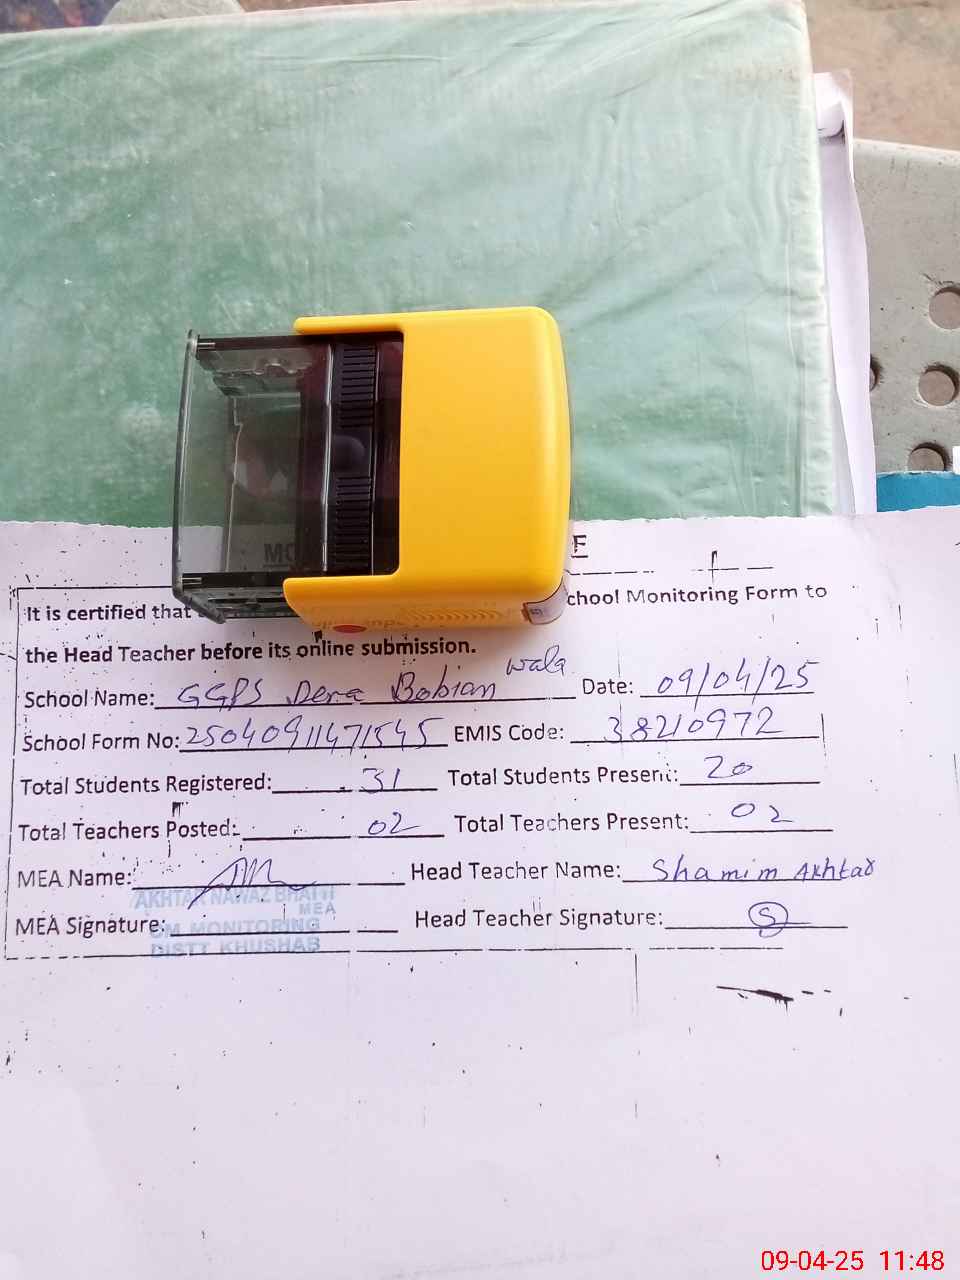 E
It is certified that chool Monitoring Form to
the Head Teacher before its online submission.
School Name: GGPS Dera Bobian wala Date: 09/04/25
School Form No: 25040911471545 EMIS Code: 38210972
Total Students Registered: 31 Total Students Present: 20
Total Teachers Posted: 02 Total Teachers Present: 02
MEA Name: Head Teacher Name: Shamim Akhtar
AKHTAR NAWAZ BHATTI
MEA
MEA Signature: Head Teacher Signature: S
CM MONITORING
DISTT KHUSHAB
09-04-25 11:48